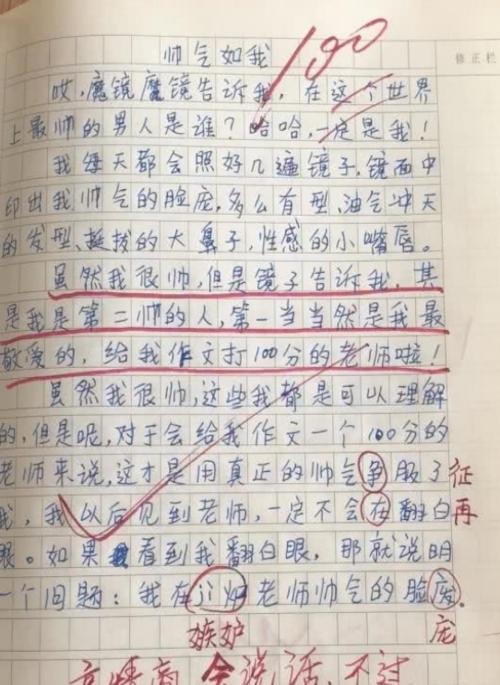 帅气如我
100
修正栏
哎,魔镜魔镜告诉我,在这个世界
上最帅的男人是谁?哈哈,一定是我!
我每天都会照好几遍镜子,镜面中
印出我帅气的脸庞,多么有型、油气冲天
的发型、挺拔的大鼻子,性感的小嘴唇。
虽然我很帅,但是镜子告诉我,其
是我是第二帅的人,第一当当然是我最
敬爱的,给我作文打100分的老师啦!
虽然我很帅,这些我都是可以理解
的,但是呢,对于会给我作文一个100分的
老师来说,这才是用真正的帅气争服了
征
我,我以后见到老师,一定不会在翻白
再
眼。如果看到我翻白眼,那就说明
一个问题:我在 老师帅气的脸
嫉妒
庞
高情商 会说话,不过